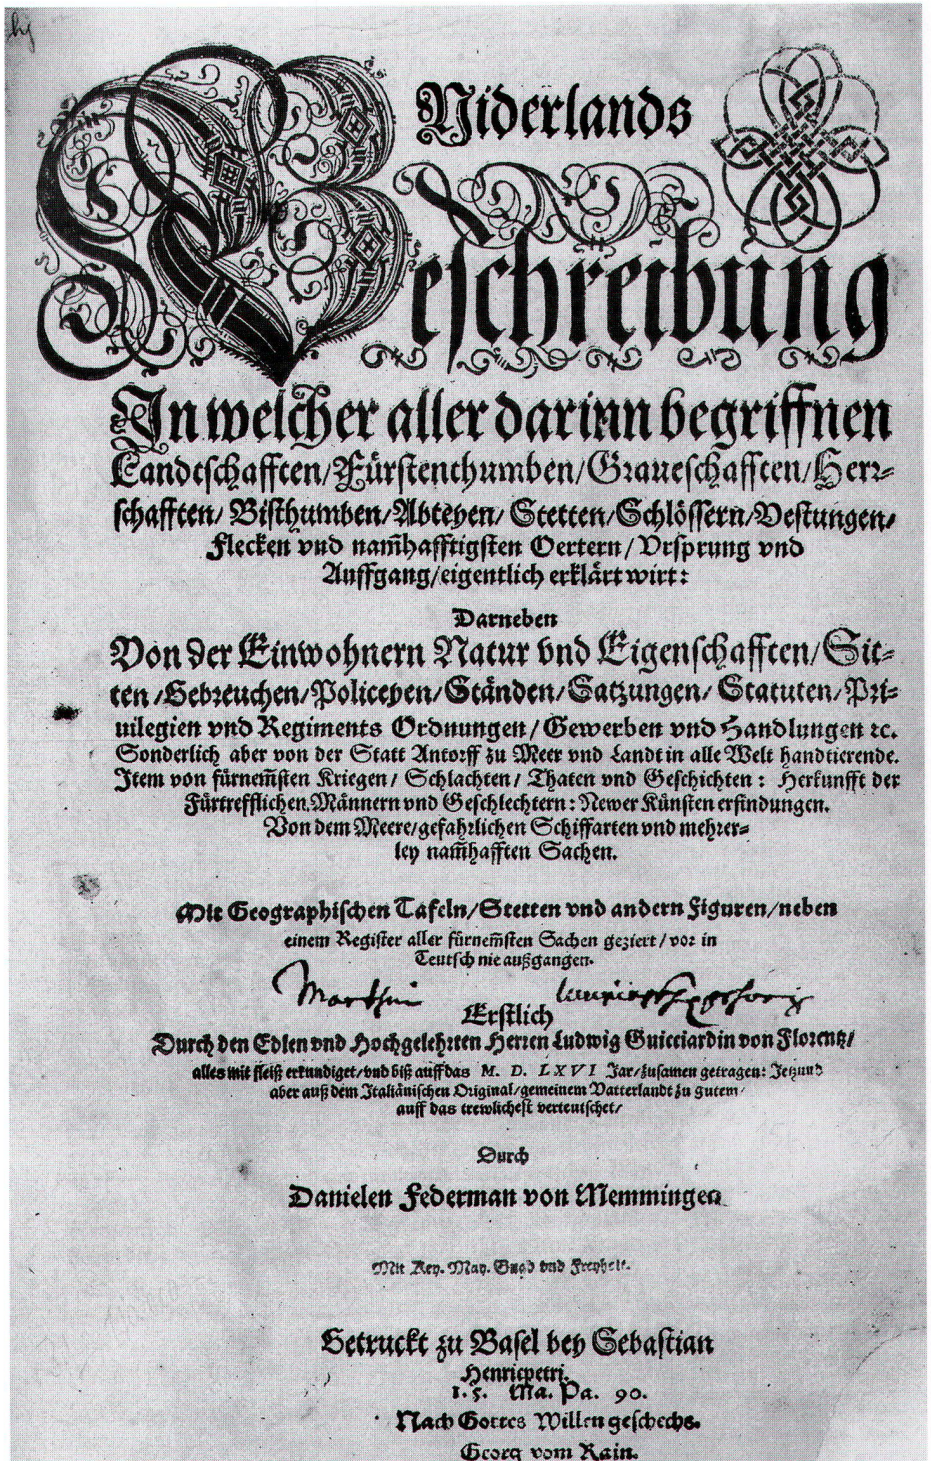 Niderlands
Beschreibung
In welcher aller darinn begriffnen
Landtschafften/Fürstenthumben/Graueschafften/Herr-
schafften/Bisthumben/Abteyen/Stetten/Schlössern/Vestungen/
Flecken vnd nam̃hafftigsten Oertern/Vrsprung vnd
Auffgang/eigentlich erklärt wirt:
Darneben
Von der Einwohnern Natur vnd Eigenschafften/Sit-
ten/Gebreuchen/Policeyen/Ständen/Satzungen/Statuten/Pri-
uilegien vnd Regiments Ordnungen/Gewerben vnd Handlungen ꝛc.
Sonderlich aber von der Statt Antorff zu Meer vnd Landt in alle Welt handtierende.
Item von fürnem̃sten Kriegen/Schlachten/Thaten vnd Geschichten: Herkunfft der
Fürtrefflichen Männern vnd Geschlechtern: Newer Künsten erfindungen.
Von dem Meere/gefahrlichen Schiffarten vnd mehrer-
ley nam̃hafften Sachen.
Mit Geographischen Tafeln/Stetten vnd andern Figuren/neben
einem Register aller fürnem̃sten Sachen geziert/vor in
Teutsch nie außgangen.
Martini
Erstlich
Durch den Edlen vnd Hochgelehrten Herren Ludwig Guicciardin von Florentz/
alles mit fleiß erkundiget/vnd biß auff das M. D. LXVI Jar/zusamen getragen: Jetzund
aber auß dem Italiänischen Original/gemeinem Vatterlandt zu gutem/
auff das trewlichest verteutschet/
Durch
Danielen Federman von Memmingen
Mit Key. May. Gnad vnd Freyheit.
Getruckt zu Basel bey Sebastian
Henricpetri.
1. 5. Ma. Pa. 90.
Nach Gottes Willen geschechs.
Georg vom Rain.